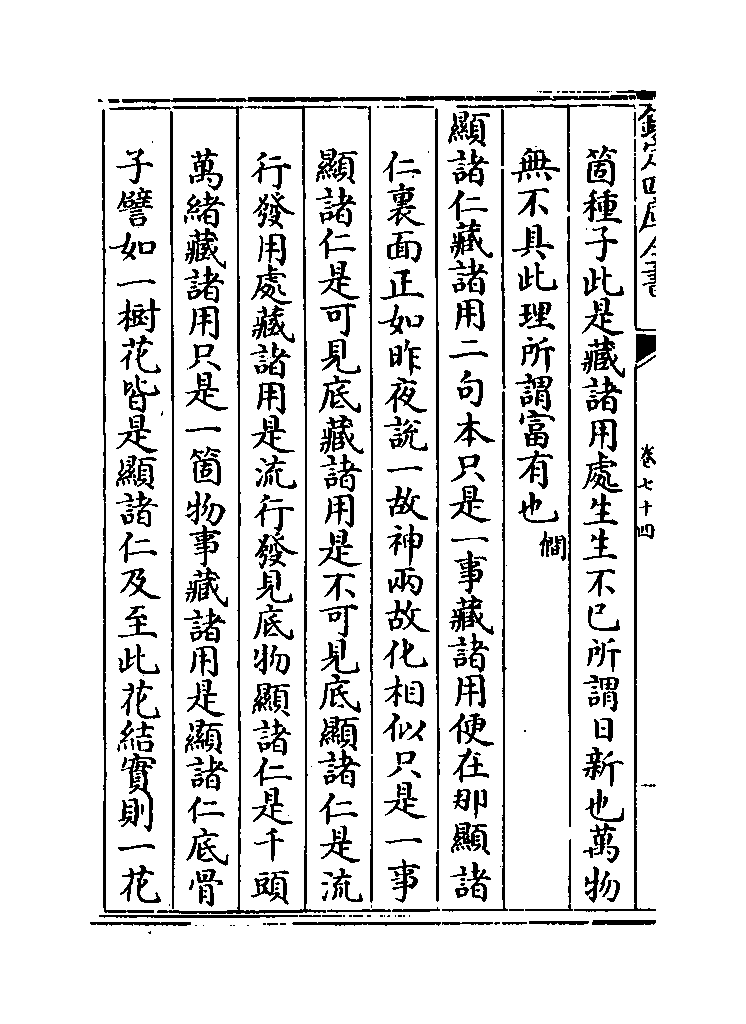 欽定四庫全書
卷七十四
箇種子此是藏諸用處生生不已所謂日新也萬物
無不具此理所謂富有也 㽦
顯諸仁藏諸用二句本只是一事藏諸用便在那顯諸
仁裏面正如昨夜說一故神兩故化相似只是一事
顯諸仁是可見底藏諸用是不可見底顯諸仁是流
行發用處藏諸用是流行發見底物顯諸仁是千頭
萬緒藏諸用只是一箇物事藏諸用是顯諸仁底骨
子譬如一樹花皆是顯諸仁及至此花結實則一花